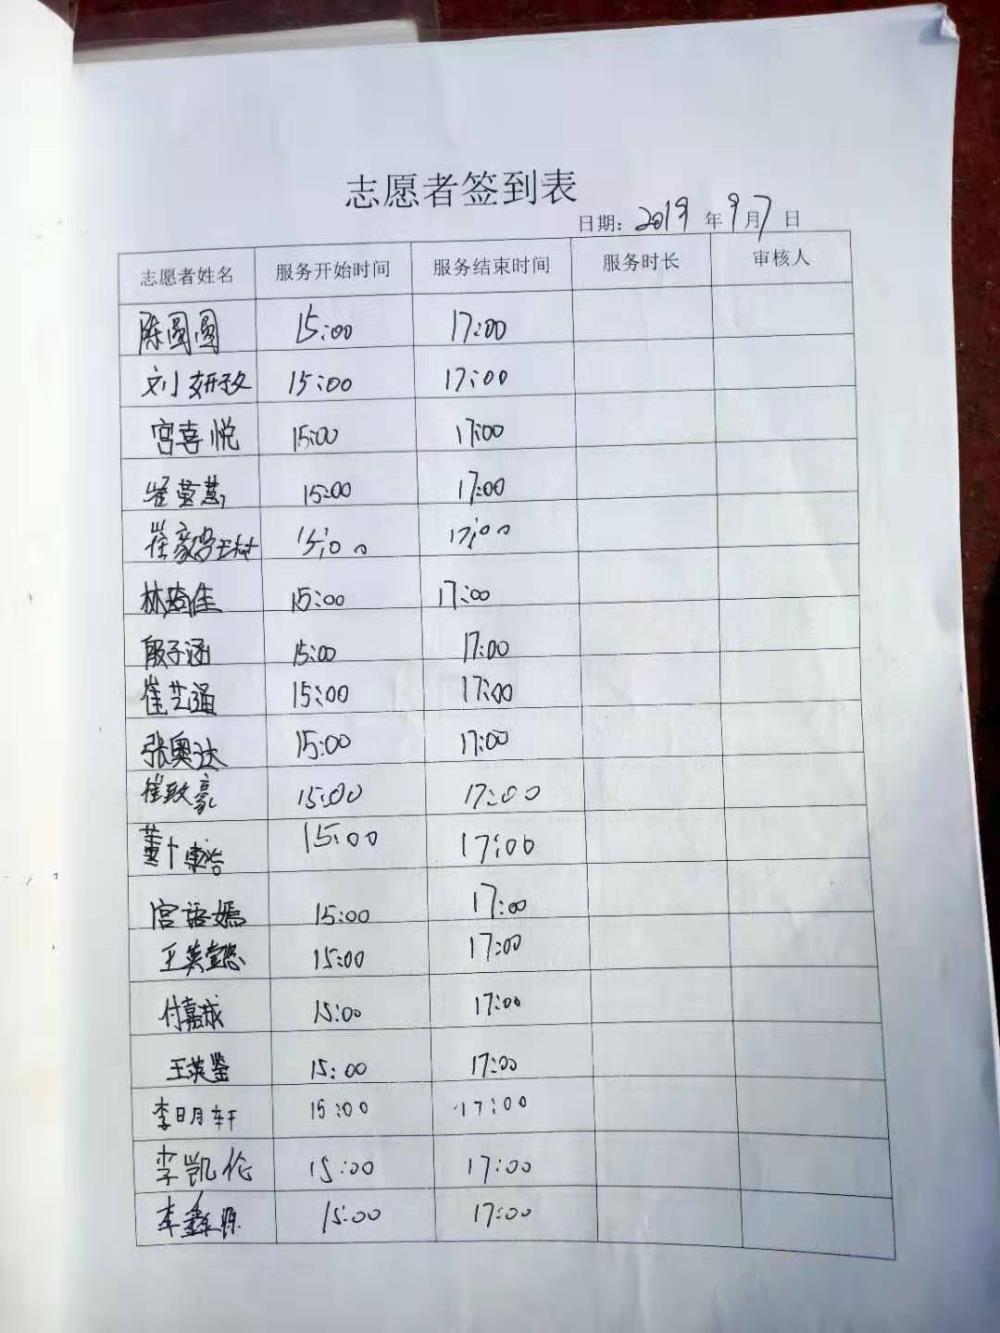 志愿者签到表
日期: 2019 年 9 月 7 日
志愿者姓名 服务开始时间 服务结束时间 服务时长 审核人
陈圆圆 15:00 17:00
刘妍玫 15:00 17:00
宫喜悦 15:00 17:00
崔萤 15:00 17:00
崔豪 15:00 17:00
林琦佳 15:00 17:00
殷子涵 15:00 17:00
崔艺涵 15:00 17:00
张奥达 15:00 17:00
崔致豪 15:00 17:00
董 15:00 17:00
宫语嫣 15:00 17:00
王英懿 15:00 17:00
付嘉成 15:00 17:00
王英鉴 15:00 17:00
李明轩 15:00 17:00
李凯伦 15:00 17:00
李鑫源 15:00 17:00